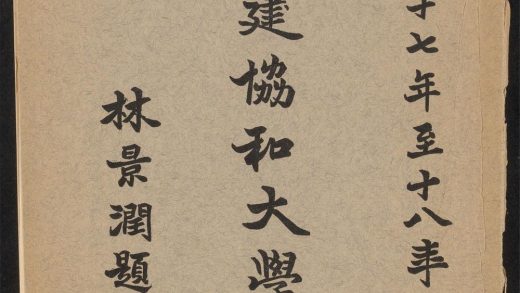 十七年至十八年
建協和大學
林景潤題